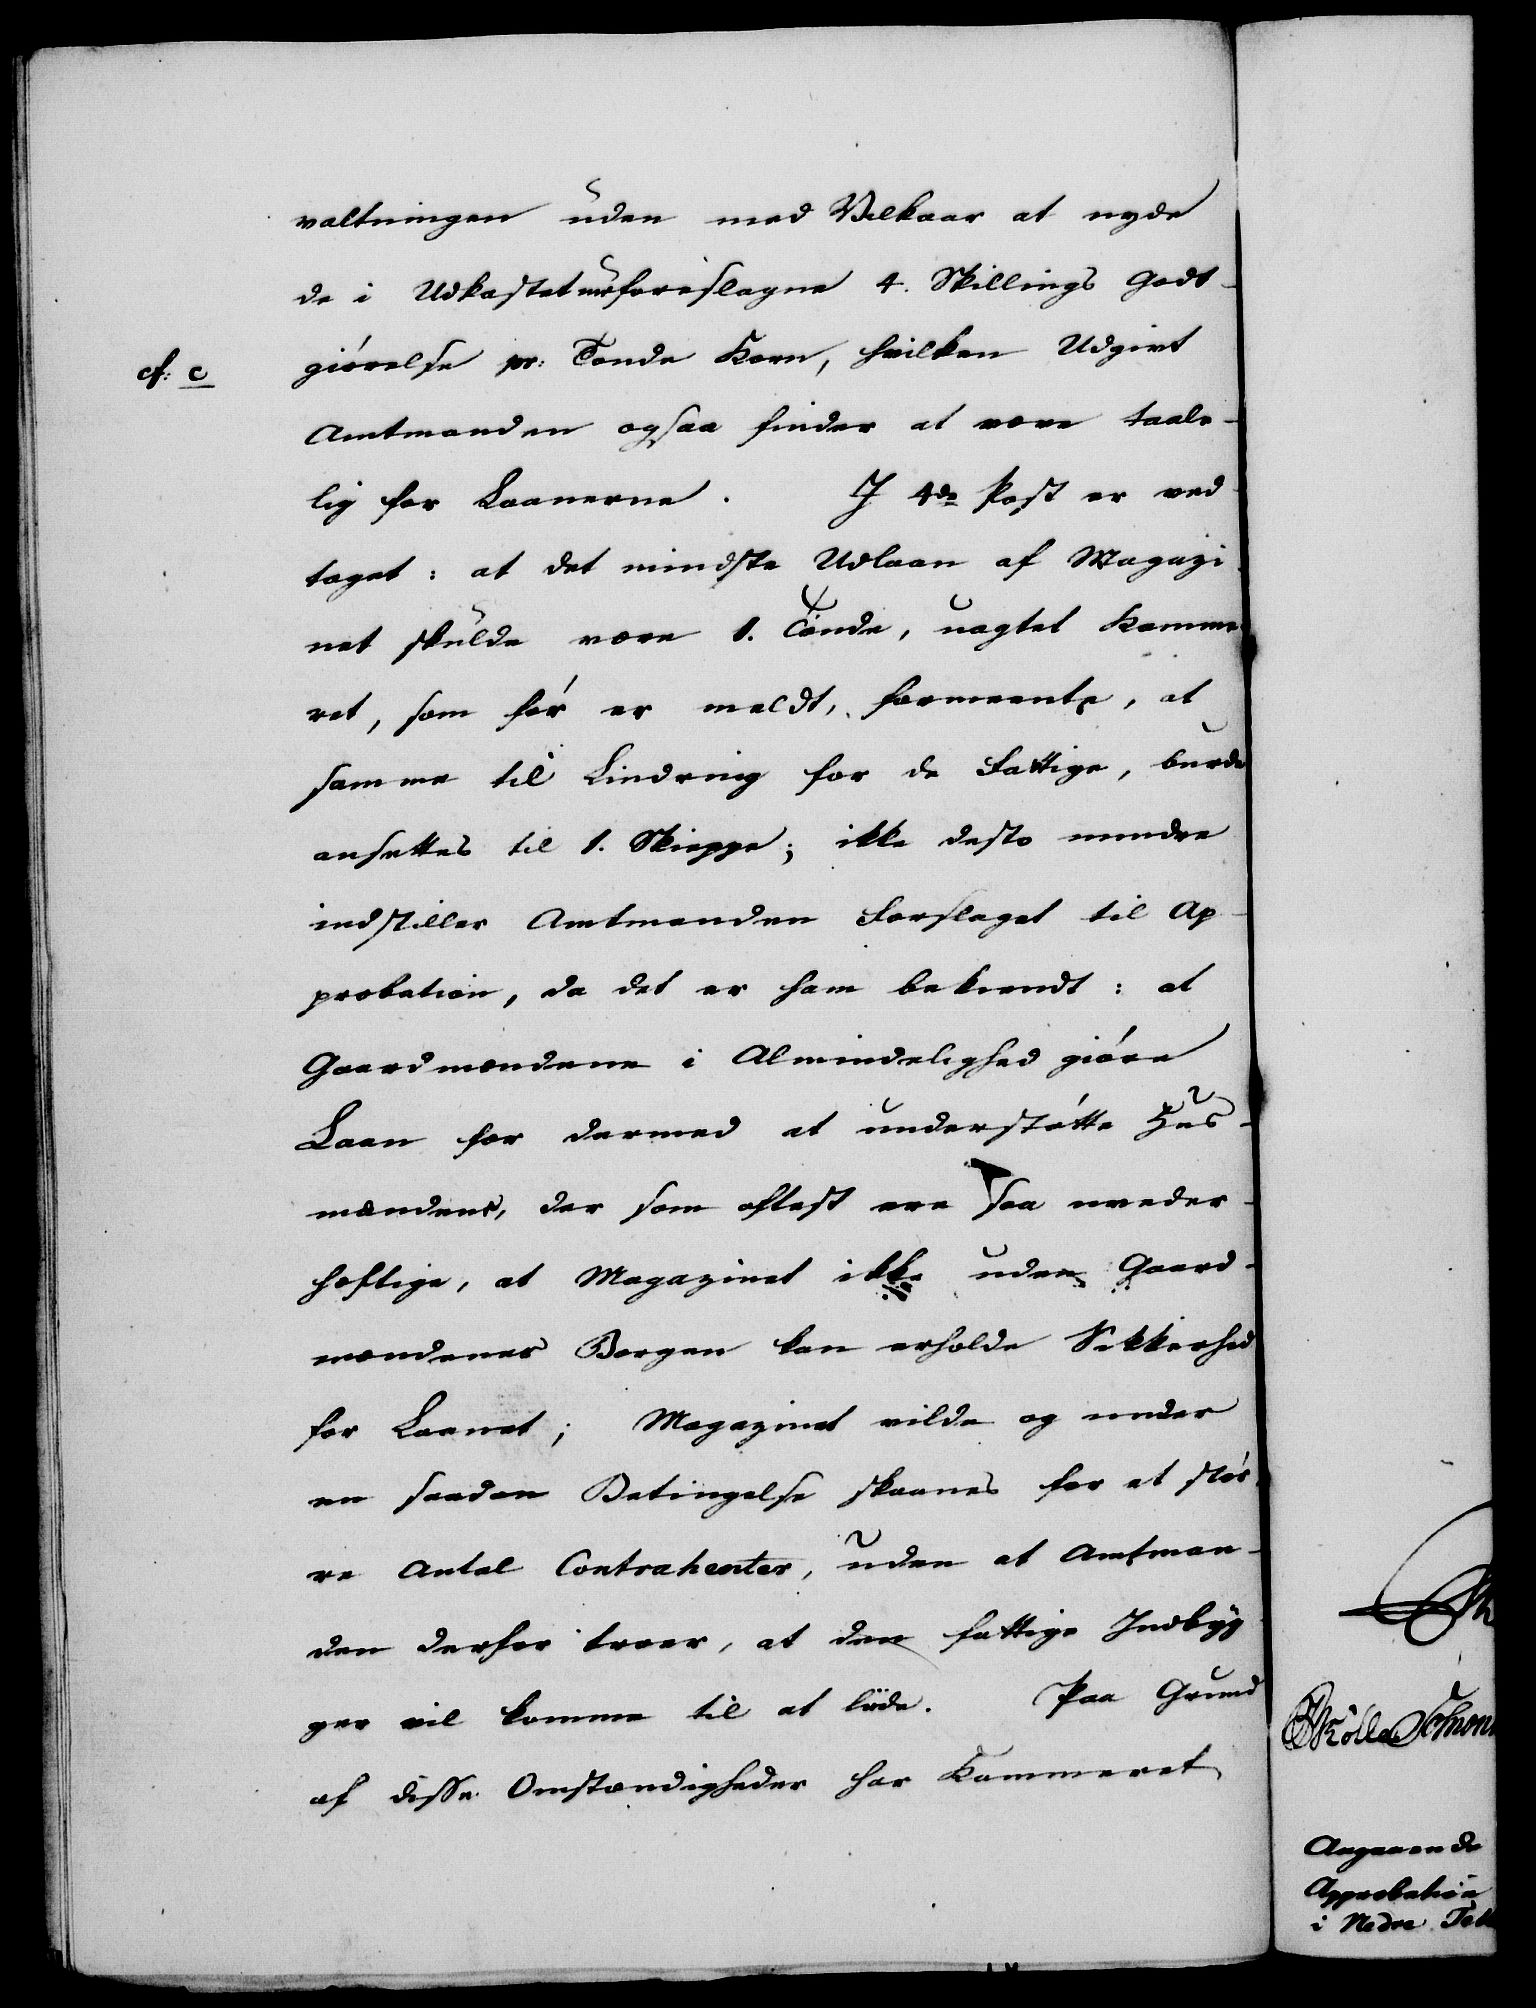 valtningen uden med Vilkaar at nyde
de i Udkastet foreslagne 4. Skillings Godt-
cf: c giørelse pr: Tønde Korn, hvilken Udgivt
Amtmanden ogsaa finder at være taale-
lig for Laanerne. I 4de Post er ved
taget: at det mindste Udlaan af Magazi
net skulde være 1. Tønde, uagtet Kamme
ret, som før er meldt, formeente, at
samme til Lindring for de Fattige, burde
ansettes til 1. Skieppe; ikke desto mindre
indstiller Amtmanden Forslaget til Ap-
probation, da det er ham bekiendt: at
Gaardmændene i Almindelighed giøre
Laan for dermed at understøtte Hus-
mændene, der som oftest ere saa uveder-
hæftige, at Magazinet ikke uden Gaard-
mændenes Borgen kan erholde Sikkerhed
for Laanet; Magazinet vilde og under
en saadan Betingelse skaanes for et stør
re Antal Contrahenter, uden at Amtman-
den derfor troer, at den fattige Indbyg
ger vil komme til at liide. Paa Grund
af disse Omstændigheder har Kammeret
Angaaende
Approbation
i Nedre